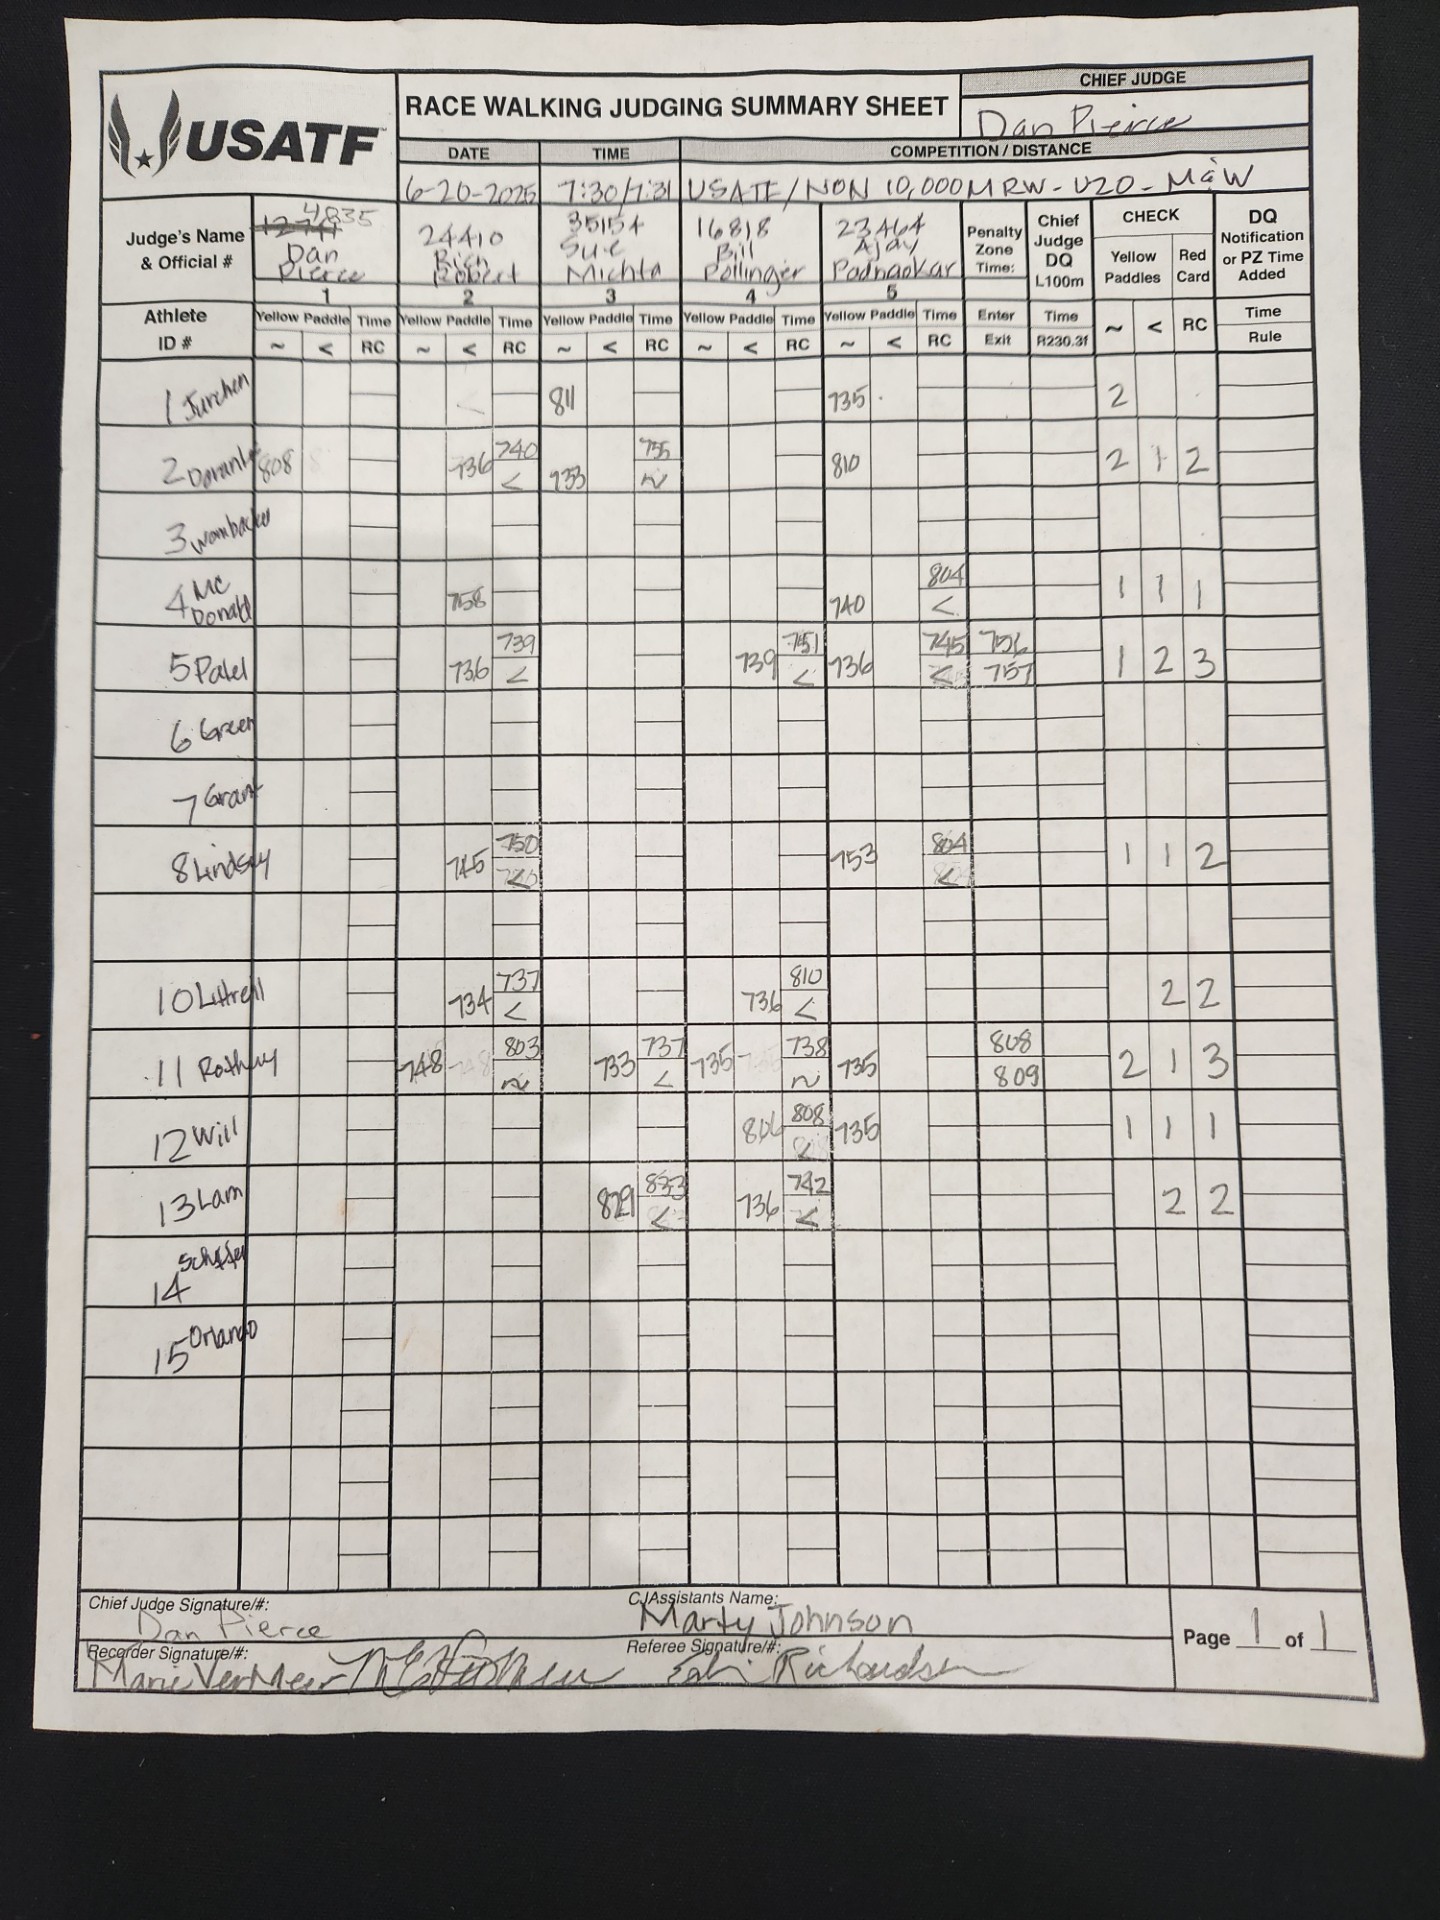 USATF
RACE WALKING JUDGING SUMMARY SHEET
CHIEF JUDGE
Dan Pierce
DATE TIME COMPETITION / DISTANCE
6-20-2025 7:30/7:31 USATF/NON 10,000M RW - U20 - M&W
Judge's Name & Official #
4835 Dan Pierce 1
24410 Rich Robert 2
35154 Sue Michta 3
16818 Bill Pollinger 4
23464 Ajay Padnaokar 5
Penalty Zone Time:
Chief Judge DQ L100m
CHECK
Yellow Paddles Red Card
DQ Notification or PZ Time Added
Athlete ID #
Yellow Paddle Time Yellow Paddle Time Yellow Paddle Time Yellow Paddle Time Yellow Paddle Time Enter Time ~ < RC Time
~ < RC ~ < RC ~ < RC ~ < RC ~ < RC Exit R230.3f Rule
1 Jurchen 811 735 2
2 808 736 740 < 733 755 ~ 810 2 1 2
3 Wombacker
4 McDonald 758 740 804 < 1 1 1
5 Patel 736 739 < 739 751 < 736 745 < 756 757 1 2 3
6 Green
7 Grant
8 Lindsey 745 750 < 753 804 < 1 1 2
10 Littrell 734 737 < 736 810 < 2 2
11 Rothwy 748 803 ~ 733 737 < 735 738 ~ 735 808 809 2 1 3
12 Will 806 808 < 735 1 1 1
13 Lam 829 833 < 736 742 < 2 2
14
15 Orlando
Chief Judge Signature/#: Dan Pierce
CJAssistants Name: Marty Johnson
Page 1 of 1
Recorder Signature/#: Marie VerMeer
Referee Signature/#: Richardson